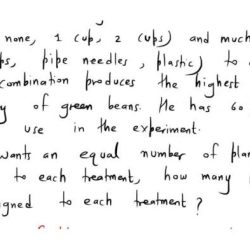 none, 1 cup, 2 cups) and much
ps, pipe needles, plastic) to
combination produces the highest
y of green beans. He has 60
use in the experiment.
wants an equal number of plan
to each treatment, how many
gned to each treatment?